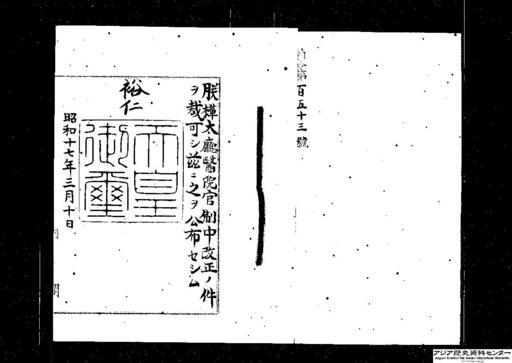 勅令第百五十三號
朕樺太廳醫院官制中改正ノ件
ヲ裁可シ茲ニ之ヲ公布セシム
裕仁
天皇
御璽
昭和十七年三月十日
アジア歴史資料センター
Japan Center for Asian Historical Records